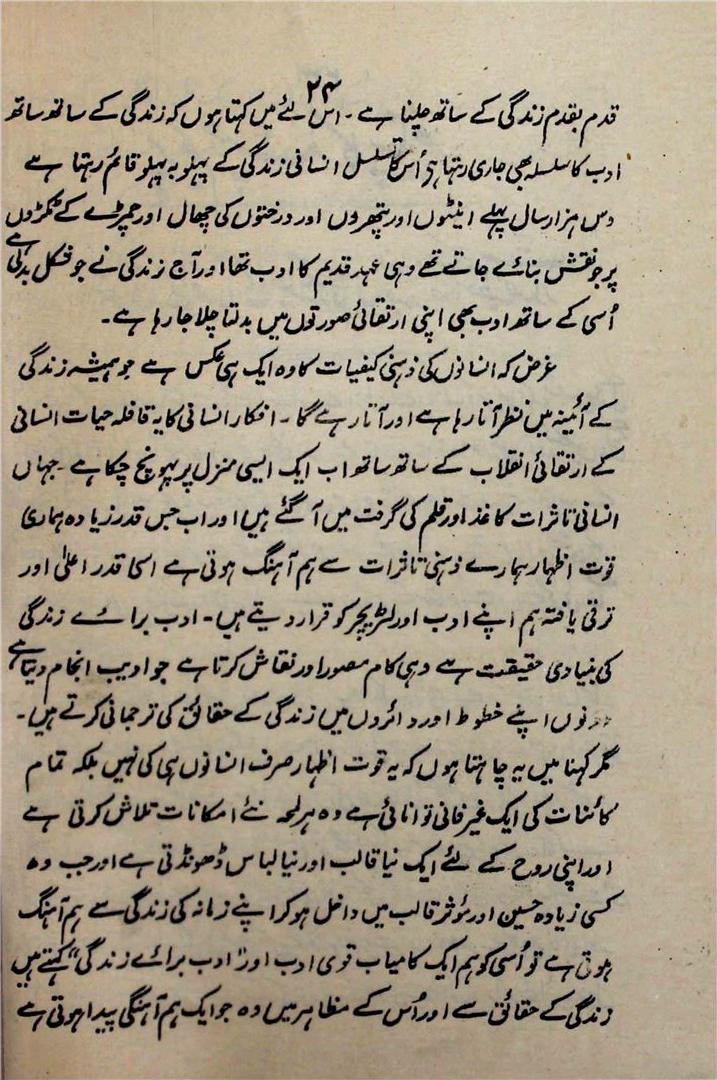 ۲۴
قدم بقدم زندگی کے ساتھ چلنا ہے ۔ اس لئے میں کہتا ہوں کہ زندگی کے ساتھ ساتھ
ادب کا سلسلہ بھی جاری رہتا ہے اُس کا تسلسل انسانی زندگی کے پہلو بہ پہلو قائم رہتا ہے
دس ہزار سال پہلے اینٹوں اور پتھروں اور درختوں کی چھال اور چمڑے کے ٹکڑوں
پر جو نقش بنائے جاتے تھے وہی عہد قدیم کا ادب تھا اور آج زندگی نے جو شکل بدلی ہے
اُسی کے ساتھ ادب بھی اپنی ارتقائی صورتوں میں بدلتا چلا جا رہا ہے ۔
غرض کہ انسانوں کی ذہنی کیفیات کا وہ ایک ہی عکس ہے جو ہمیشہ زندگی
کے آئینہ میں نظر آتا رہا ہے اور آتا رہے گا ۔ افکار انسانی کا یہ قافلہ حیات انسانی
کے ارتقائی انقلاب کے ساتھ ساتھ اب ایک ایسی منزل پر پہونچ چکا ہے ۔ جہاں
انسانی تاثرات کاغذ اور قلم کی گرفت میں آ گئے ہیں اور اب جس قدر زیادہ ہماری
قوت اظہار ہمارے ذہنی تاثرات سے ہم آہنگ ہوتی ہے اسی قدر اعلیٰ اور
ترقی یافتہ ہم اپنے ادب اور لٹریچر کو قرار دیتے ہیں ۔ ادب برائے زندگی
کی بنیادی حقیقت ہے وہی کام مصور اور نقاش کرتا ہے جو ادیب انجام دیتا ہے
دونوں اپنے خطوط اور دائروں میں زندگی کے حقائق کی ترجمانی کرتے ہیں ۔
مگر کہنا میں یہ چاہتا ہوں کہ یہ قوت اظہار صرف انسانوں ہی کی نہیں بلکہ تمام
کائنات کی ایک غیر فانی توانائی ہے وہ ہر لمحہ نئے امکانات تلاش کرتی ہے
اور اپنی روح کے لئے ایک نیا قالب اور نیا لباس ڈھونڈتی ہے اور جب وہ
کسی زیادہ حسین اور مؤثر قالب میں داخل ہو کر اپنے زمانہ کی زندگی سے ہم آہنگ
ہوتی ہے تو اُسی کو ہم ایک کامیاب قومی ادب اور "ادب برائے زندگی" کہتے ہیں
زندگی کے حقائق سے اور اُس کے مظاہر میں وہ جو ایک ہم آہنگی پیدا ہوتی ہے